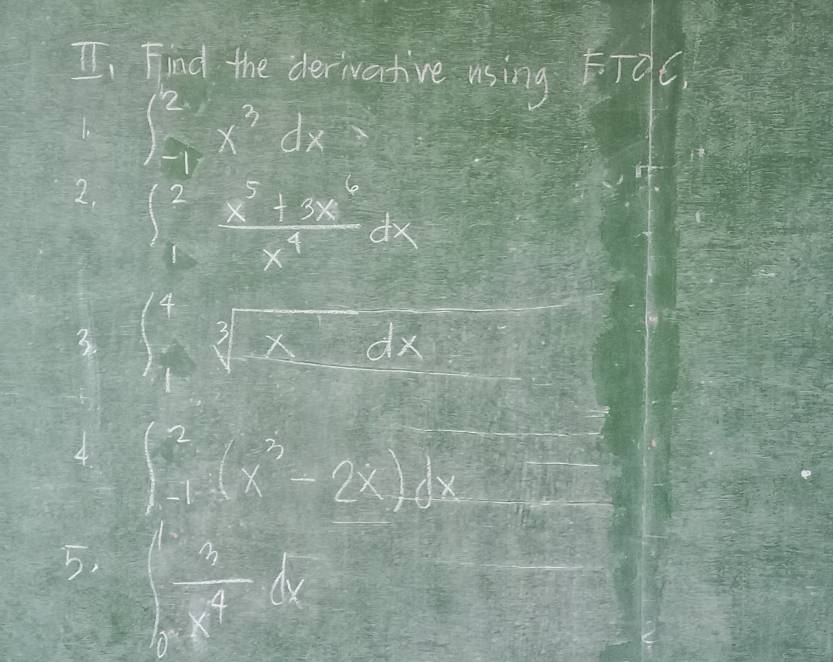 II. Find the derivative using F.T.O.C.
1. ∫₋₁² x³ dx
2. ∫₁² (x⁵ + 3x⁶)/x⁴ dx
3. ∫₁⁴ ∛(x dx)
4. ∫₋₁² (x³ - 2x) dx
5. ∫₀¹ 3/x⁴ dx